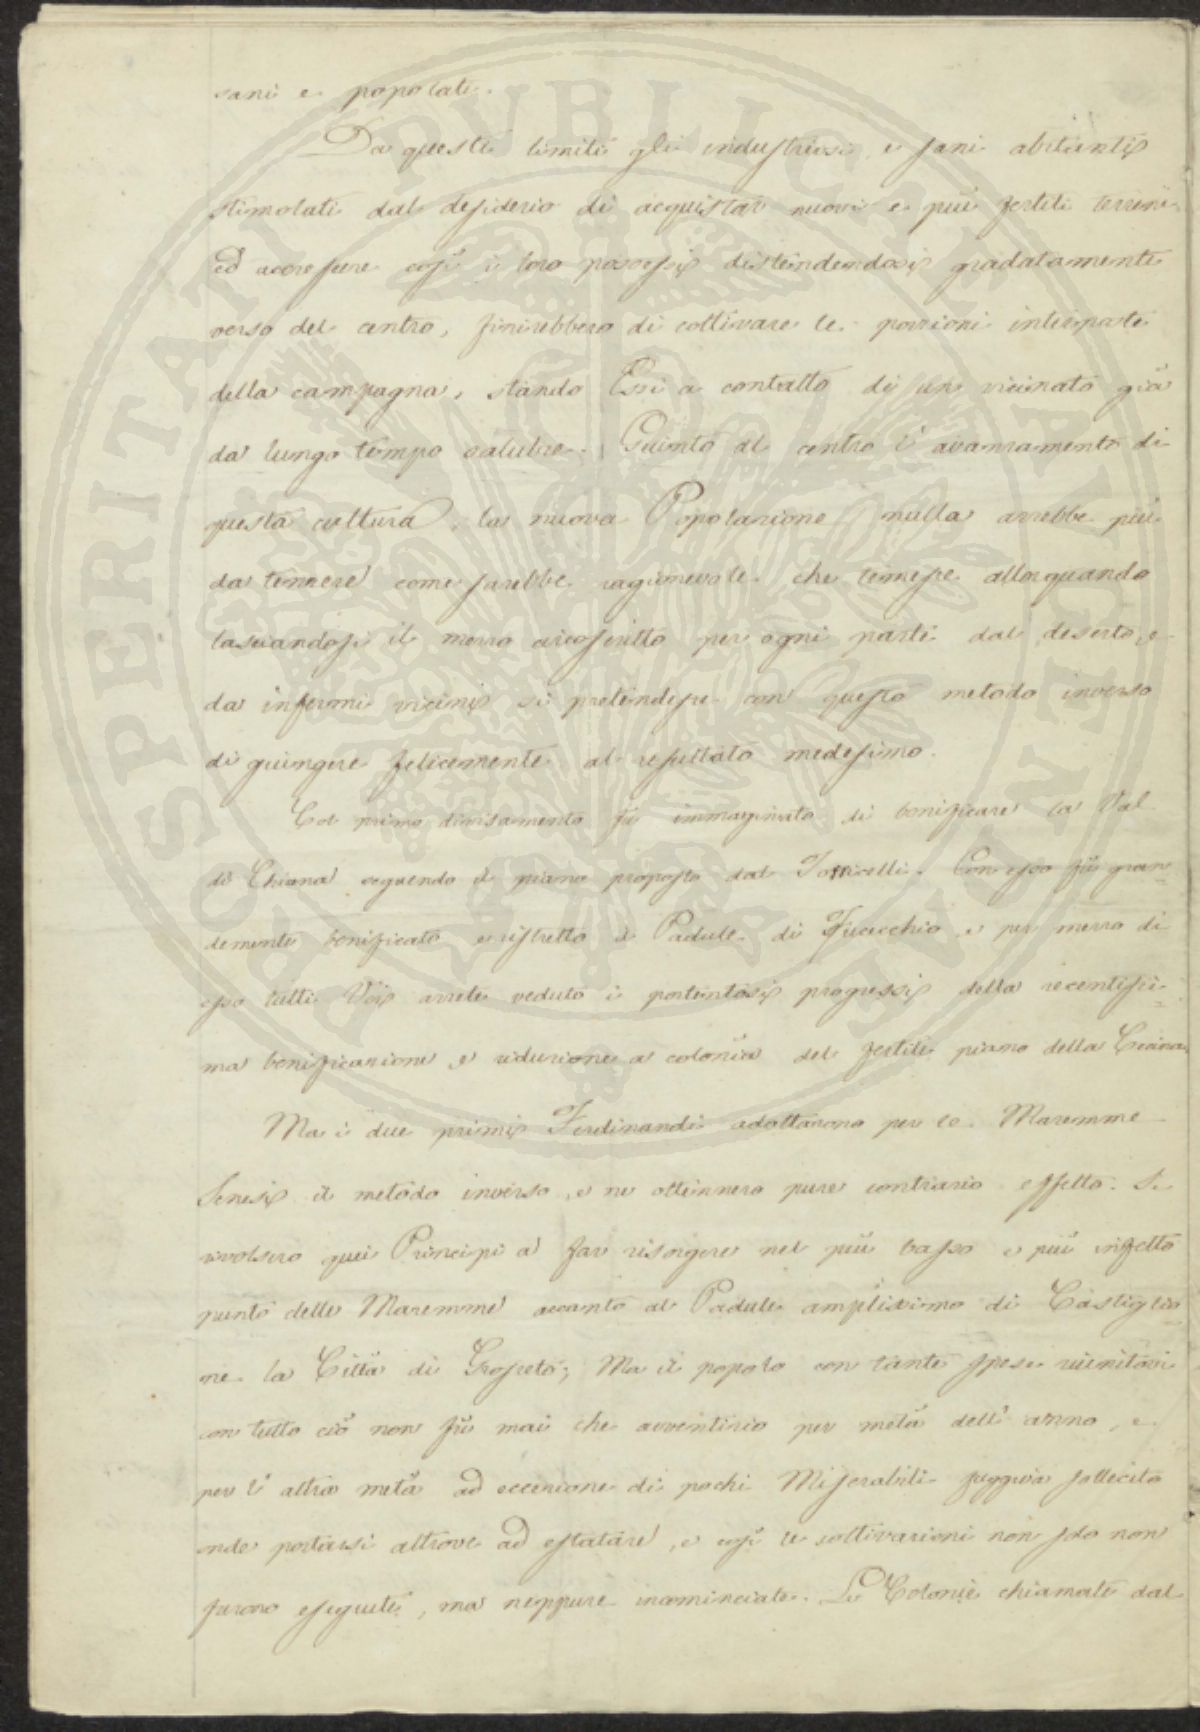 sani e popolati.
Da questi limiti gli industriosi, e sani abitanti
stimolati dal desiderio di acquistar nuovi e più fertili terreni
ed accrescere così i loro possessi distendendosi gradatamente
verso del centro, finirebbero di coltivare le porzioni interposte
della campagna, stando Essi a contatto di un vicinato già
da lungo tempo salubre. Giunto al centro l'avanzamento di
questa cultura, la nuova Popolazione nulla avrebbe più
da temere come sarebbe ragionevole che temesse allorquando
lasciandosi il mezzo circoscritto per ogni parte dal deserto, e
da infermi vicini si pretendesse con questo metodo inverso
di giungere felicemente al resultato medesimo.
Col primo divisamento fù immaginato di bonificare la Val
di Chiana seguendo il piano proposto dal Torricelli. Con esso fù gran=
demente bonificato e ristretto il Padule di Fucecchio, e per mezzo di
esso tutti Voi avete veduto i portentosi progressi della recentissi=
ma bonificazione, e riduzione a colonia del fertile piano della Cecina.
Ma i due primi Ferdinandi adottarono per le Maremme
Senesi il metodo inverso, e ne ottennero pure contrario effetto. Si
rivolsero quei Principi a far risorgere nel più basso e più infetto
punto delle Maremme accanto al Padule amplissimo di Castiglio=
ne la Città di Grosseto; Ma il popolo con tante spese riunitovi
con tutto ciò non fù mai che avventizio per metà dell'anno, e
per l'altra metà ad eccezione di pochi Miserabili fuggiva sollecito
onde portarsi altrove ad estatare, e così le coltivazioni non solo non
furono eseguite, ma neppure incominciate. Le Colonie chiamate dal
PROSPERITATI PVBLICAE AVGENDAE